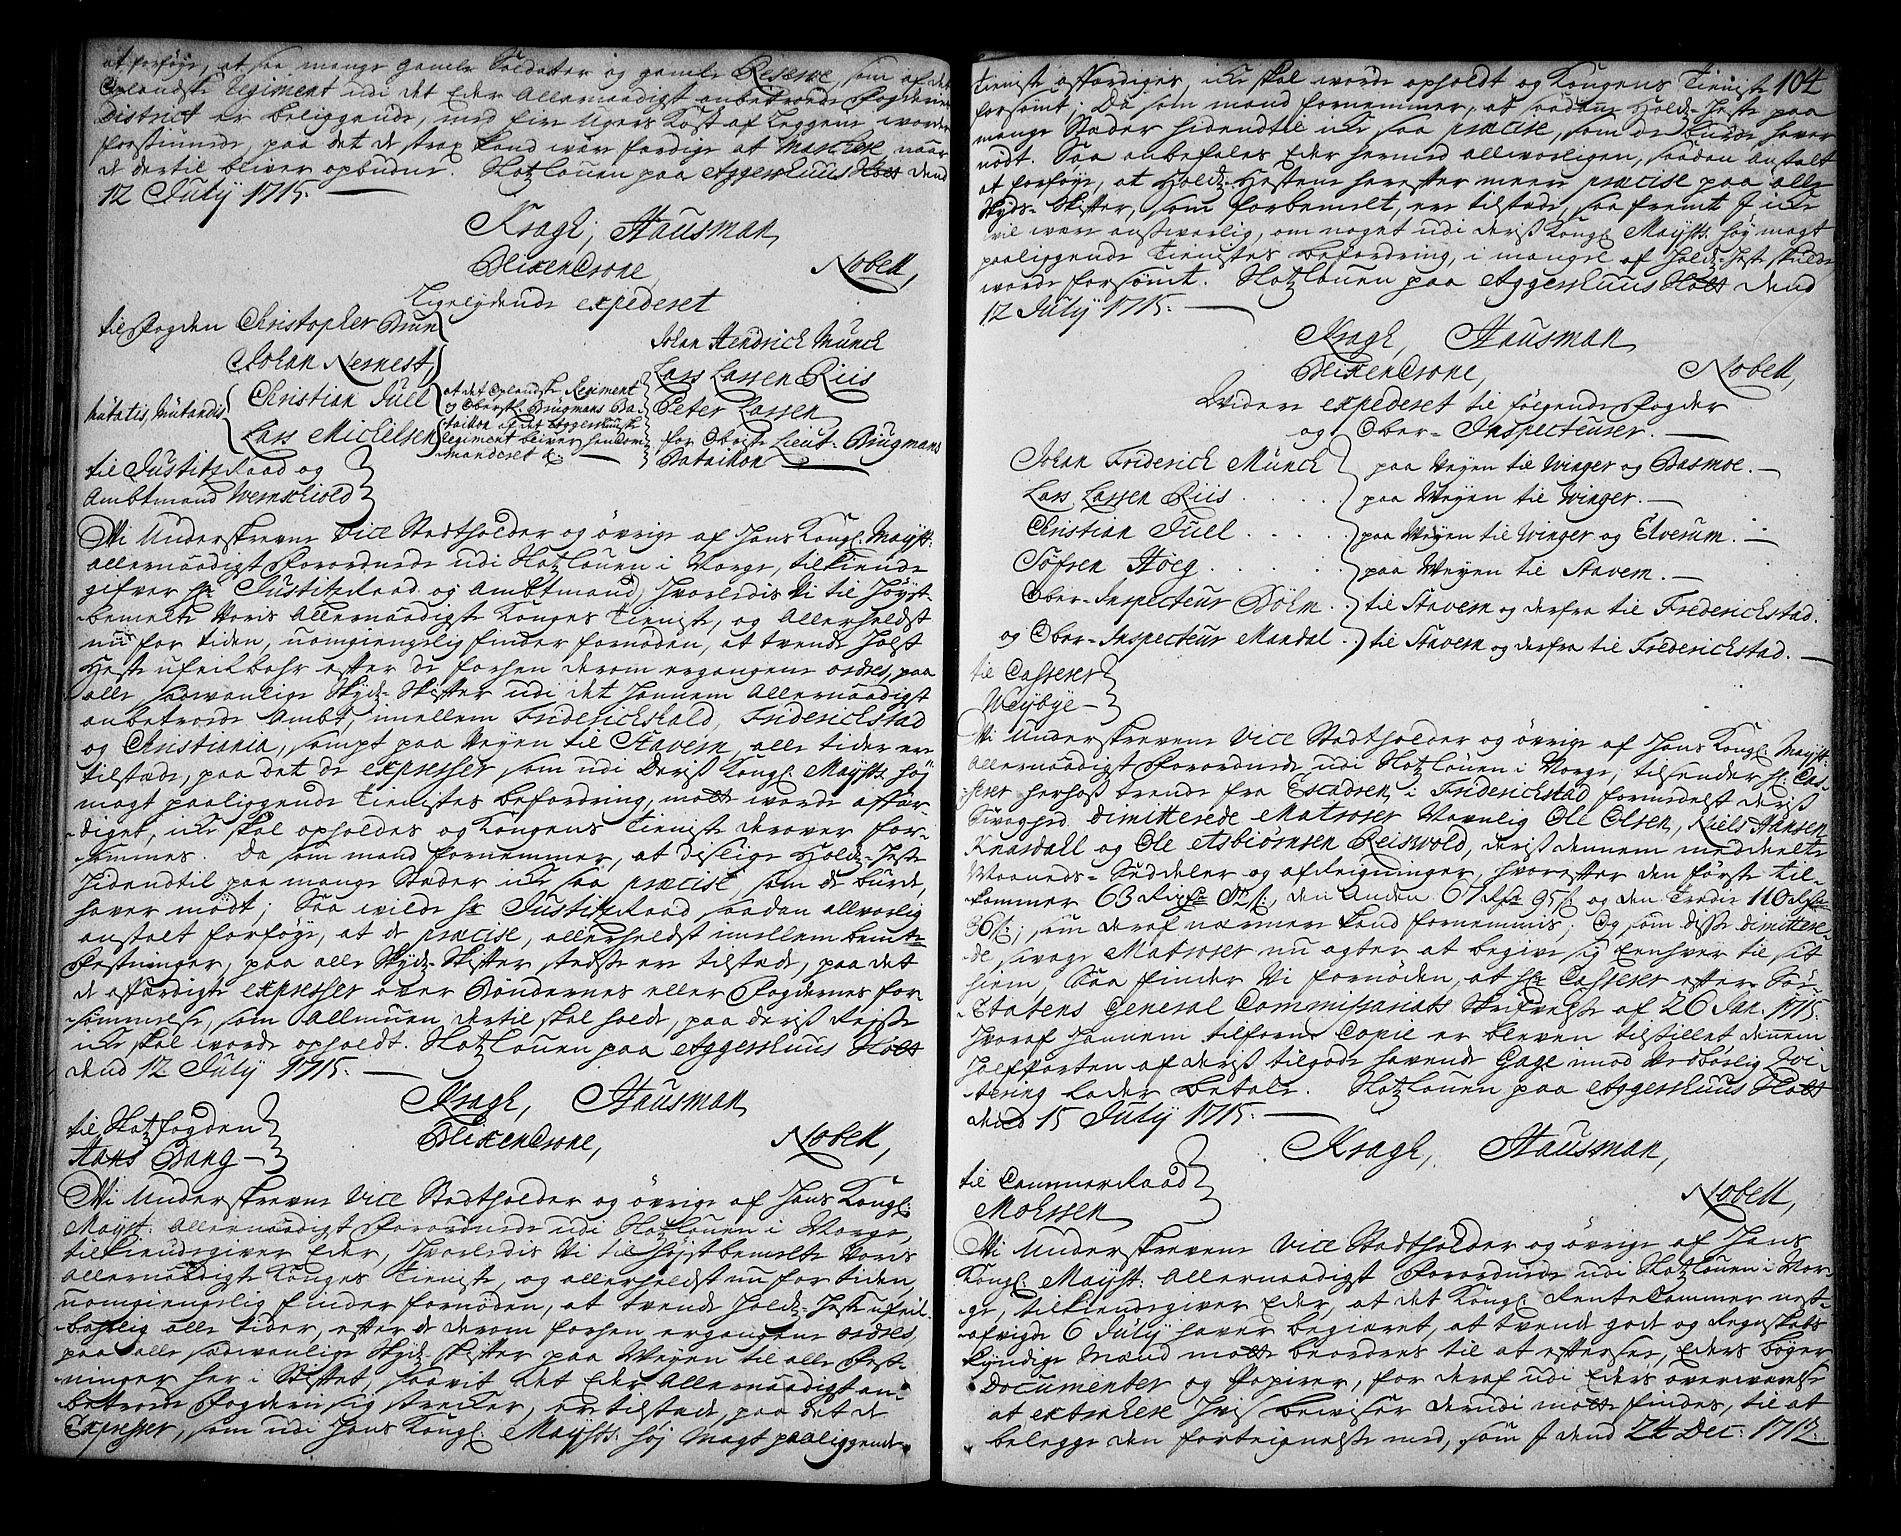 at forføye, at saa mange gamle Soldater og gamle Reserve, som af det
Oplandske Regiment udi det Eder Allernaadigst anbetroede Fogderies
District er beliggende, med fire Ugers Kost af Leggene worder
forsiunede, paa det de strax kand wære færdige at Marchere naar
de dertil bliver opbudne. Slotzlouen paa Aggershuus Slott dend
12 July 1715.
Kragh, Hausman
Blixencrone, Nobell,
Ligelydende expederet
til Fogden Christopher Bruun
Johan Nernest,
mutatis, Mutandis
Christian Juel
Lars Michelsen
at det Oplandske Regiment
og Oberstl. Brügmans Ba-
taillon af det Aggershuusiske
Regiment bliver henkom-
manderet etc.
Johan Hendrick Munch
Lars Larsen Riis
Peter Larsen
for Obriste Lieut. Brügmans
Bataillon
til Justitz Raad og
Ambtmand Wernschiold
Wi Underskrevne Vice Stadtholder og øvrige af Hans Kongl. Mayst.
allernaadigst Forordnede udi Slotzlouen i Norge, tilkiende
gifver Hr. Justitz Raad og Ambtmand, hvorledis Vi til Høyst-
bemelte Voris Allernaadigste Konges Tieniste, og Allerhelst
nu for tiden, uomgiengelig finder fornøden, at tvende Holdt
Heste ufeilbahr efter de forhen derom ergangene ordres, paa
alle sædvanlige Skydz-Skifter udi det hannem Allernaadigst
anbetroede Ambt, imellem Friderichshald, Friderichstad
og Christiania, sampt paa Veyen til Stavern, alle tider er
tilstæde, paa det de expresser som udi Deris Kongl. Maysts. høy
magt paaliggende Tienistes befordring, motte worde affær-
diget, icke skal opholdes og Kongens Tieniste derover for-
sømmes. Da som mand fornemmer, at dislige Holdtz-Heste
hidendtil paa mange Stæder icke saa præcise, som de burde,
haver mødt; Saa wilde Hr. Justitz Raad saadan allvorlig
anstalt forføye, at de præcise, allerhelst imellem bemte
Festninger, paa alle Skydz-Skifter stedse er tilstæde, paa det
de affærdigte expresser over Bøndernes eller Fogdernes for-
sømmelse, som Allmuen dertil skal holde, paa deris Reyse
icke skal worde opholdt. Slotzlouen paa Aggershuus Slott
dend 12 July 1715.
Kragh, Hausman
Blixencrone, Nobell,
til Slotzfogden
Hans Bang
Wi Underskrevne Vice Stadtholder og øvrige af Hans Kongl.
Mayst. Allernaadigst Forordnede udi Slotzlouen i Norge,
tilkiendegiver Eder, hvorledis Vi til Høystbemelte Voris
Allernaadigste Konges Tieniste, og allerhelst nu for tiden,
uomgiengelig finder fornøden, at tvende Holdtz-Heste ufeil-
bahrlig alle tider, efter de derom forhen ergangene ordres,
paa alle sædvanlige Skydz skifter paa Veyen til alle Fest-
ninger her i Stiftet, saavit det Eder Allernaadigst an-
betroede Fogderie sig strecker, er tilstæde, paa det de
Expresser, som udi Hans Kongl. Maysts. høy Magt paaliggende
104
Tieniste affærdiges, icke skal worde opholdt og Kongens Tieniste
forsømt; Da som mand fornemmer, at saadanne Holdtz-Heste paa
mange Stæder hidendtil icke saa præcise, som de burde haver
mødt. Saa anbefales Eder hermed allvorligen, saadan anstalt
at forføye, at Holdtz-Hestene herefter meere præcise paa alle
Skyds-Skifter, som forbemelt, er tilstæde, saa fremt I icke
vil were ansvarlig, om noget udi Deris Kongl. Maysts. høy magt
paaliggende Tienistes befordring, i mangel af Holdtz-Heste skulde
worde forsømt. Slotzlouen paa Aggershuus Slott dend
12 July 1715.
Kragh, Hausman
Blixencrone, Nobell,
Widere expederet til følgende Fogder
og Ober-Inspecteurer.
Johan Friderich Münch paa Veyen til Winger og Basmoe.
Lars Larsen Riis paa Veyen til Winger.
Christian Juel paa Veyen til Winger og Elverum.
Søfren Høeg paa Veyen til Stavern.
Ober-Inspecteur Bølm til Stavern og derfra til Friderichstad.
og Ober-Inspecteur Mandal til Stavern og derfra til Friderichstad.
til Casserer
Weybye
Wi Underskrevne Vice Stadtholder og øvrige af Hans Kongl. Mayst.
Allernaadigst Forordnede udi Slotzlouen i Norge, tilsender Hr. Cas-
serer herhos trende fra Escadren i Friderichstad formedelst deris
Svaghed dimitterede Matroser Navnlig Ole Olsen, Niels Hansen
Knasdall og Ole Asbiørnsen Reiswold, deris dennem meddeelte
Maaneds-Seddeler og afreigninger, hvorefter den første til-
kommer 63 Rixdr. , den Anden 67 Rdr. 95 s. og den Tredie 110 Rdr.
36 s., som deraf nærmere kand fornemmis; Og som disse dimittere-
de svage Matroser nu agter at begive sig Eenhver til sit
hiem, Saa finder Vi fornøden, at Hr. Casserer efter Søe-
Etatens General Commissariats Skrifvelse af 26 Jan. 1715.
hvoraf hannem tilforne Copie er bleven tilstillet dennem
helfparten af deris tilgode havende Gage mod vedbørlig Qvi-
tering lader betale. Slotzlouen paa Aggershuus Slott
dend 15 July 1715.
Kragh, Hausman,
Nobell,
til Cammerraad
Mohssen
Wi Underskrevne Vice Stadtholder og øvrige af Hans
Kongl. Mayst. Allernaadigst Forordnede udi Slotzlouen i Nor-
ge, tilkiendegiver Eder, at det Kongl. Rente Cammer nest-
afvigte 6 July haver begieret, at tvende gode og Regnskabs
kyndige Mænd motte beordres til at efftersee, Eders bøger
Documenter og Papirer, for deraf udi Eders overværelse
at extrahere hvis beviser derudi motte findes, til at
belegge den fortegnelse med, som I dend 24 Dec. 1712.